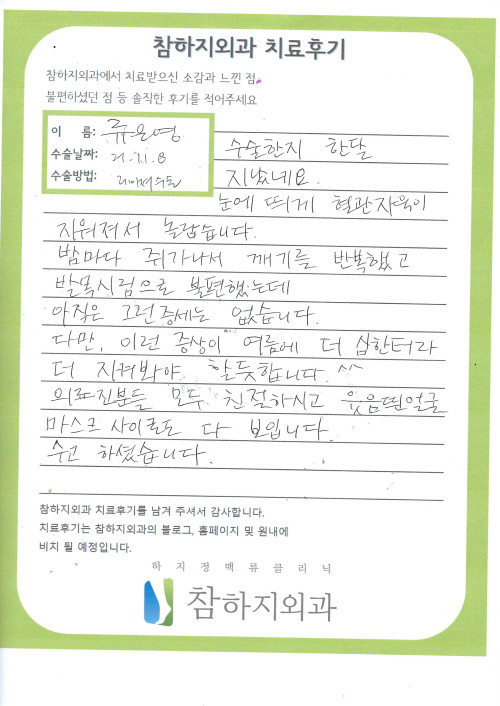 참하지외과 치료후기
참하지외과에서 치료받으신 소감과 느낀 점,
불편하셨던 점 등 솔직한 후기를 적어주세요
이 름: 류은영
수술날짜: 21. 11. 8
수술방법: 레이저수술
수술한지 한달
지났네요.
눈에 띄게 혈관자욱이
지워져서 놀랍습니다.
밤마다 쥐가나서 깨기를 반복했고
발목시림으로 불편했는데
아직은 그런증세는 없습니다.
다만, 이런 증상이 여름에 더 심한터라
더 지켜봐야 할듯합니다. ^^
의료진분들 모두 친절하시고 웃음띤얼굴
마스크 사이로도 다 보입니다.
수고 하셨습니다.
참하지외과 치료후기를 남겨 주셔서 감사합니다.
치료후기는 참하지외과의 블로그, 홈페이지 및 원내에
비치 될 예정입니다.
하지정맥류클리닉
참하지외과